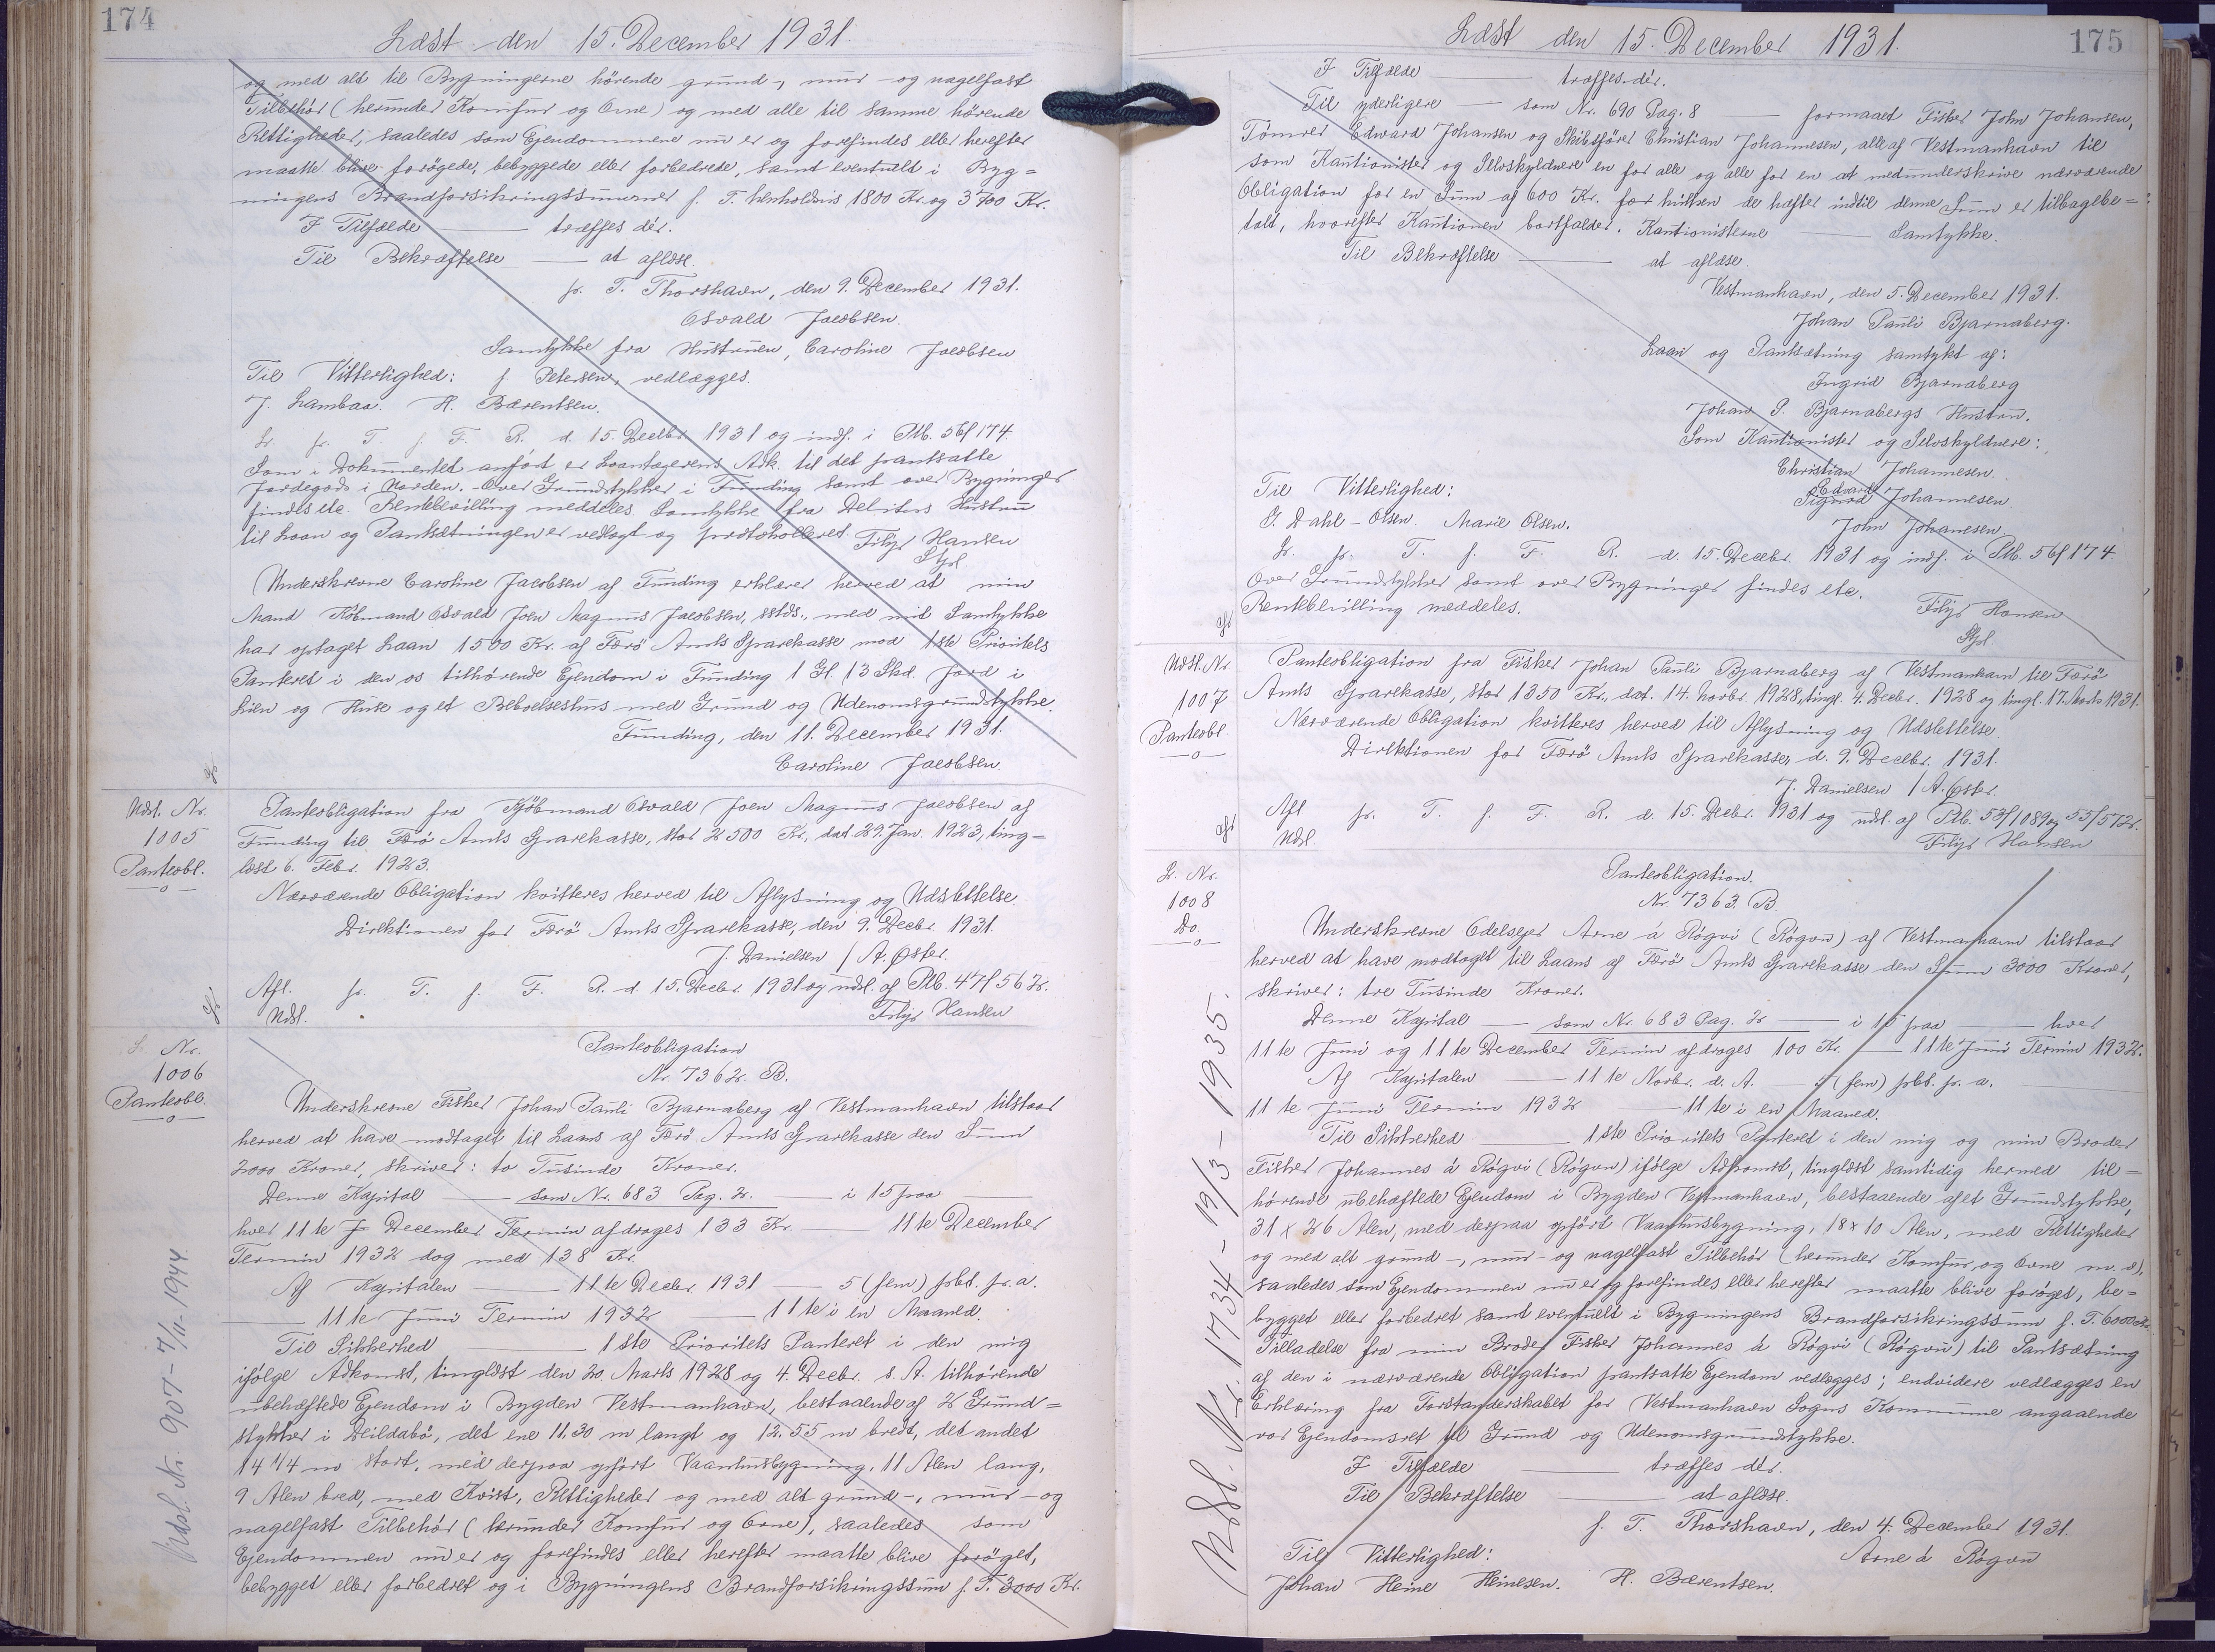 174
Læst den 15. December 1931.
og med alt til Bygningerne hörende grund-, mur- og nagelfast
Tilbehör (herunder Komfur og Ovne) og med alle til samme hörende
Rettigheder, saaledes som Ejendommene nu er og forefindes eller herefter
maatte blive forögede, bebyggede eller forbedrede, samt eventuelt i Byg=
ningens Brandforsikringssummer p. T. henholdsvis 1800 Kr. og 3700 Kr.
I Tilfælde — træffes dér.
Til Bekræftelse — at aflæse.
p. T. Thorshavn, den 9. December 1931.
Osvald Jacobsen.
Samtykke fra Hustruen, Caroline Jacobsen
Til Vitterlighed: f. Petersen, vedlægges.
J. Lambaa. H. Bærentsen.
Lr. pr. T. f. F. R. d. 15. Decbr. 1931 og indf. i Ptb. 56/174.
Som i Dokumentet anfört er Laantagerens Adk. til det pantsatte
Jordegods i Orden. Over Grundstykker i Funding samt over Bygninger
findes etc. Rentebevilling meddeles. Samtykke fra Debitors Hustru
til Laan og Pantsætningen er vedlagt og protokolleret. Filip Hansen
Stpl
Underskrevne Caroline Jacobsen af Funding erklærer herved at min
Mand Köbmand Osvald Joen Magnus Jacobsen, sstds., med mit Samtykke
har optaget Laan 1500 Kr. af Færö Amts Sparekasse mod 1ste Prioritets
Panteret i den os tilhörende Ejendom i Funding 1 Gl. 13 Skd. Jord i
Lien og Huse og et Beboelseshus med Grund og Udenomsgrundstykke.
Funding, den 11. December 1931.
Caroline Jacobsen.
Udsl. Nr.
1005
Panteobl.
Panteobligation fra Kjöbmand Osvald Joen Magnus Jacobsen af
Funding til Færö Amts Sparekasse, stor 2500 Kr., dat. 29. Jan. 1923, ting=
læst 6. Febr. 1923.
Nærværende Obligation kvitteres herved til Aflysning og Udslettelse.
Direktionen for Færö Amts Sparekasse, den 9. Decbr. 1931.
J. Danielsen / A. Øster.
Afl. pr. T. f. F. R. d. 15. Decbr. 1931 og udsl. af Ptb. 47/562.
Udsl. Filip Hansen
Lr. Nr.
1006
Panteobl.
Panteobligation
Nr. 7362. B.
Underskrevne Fisker Johan Pauli Bjarnaberg af Vestmanhavn tilstaar
herved at have modtaget til Laans af Færö Amts Sparekasse den Sum
2000 Kroner, skriver: to Tusinde Kroner.
Denne Kapital — som Nr. 683 Pag. 2. — i 15 paa —
hver 11te J December Termin afdrages 133 Kr. — 11te December
Termin 1932 dog med 138 Kr.
Af Kapitalen — 11te Decbr. 1931 — 5 (fem) pbt. p. a.
— 11te Juni Termin 1932 — 11te i en Maaned.
Til Sikkerhed — 1ste Prioritets Panteret i den mig
ifölge Adkomst, tinglæst den 20. Marts 1928 og 4. Decbr. s. A. tilhörende
ubehæftede Ejendom i Bygden Vestmanhavn, bestaaende af 2 Grund=
stykker i Deildabö, det ene 11.30 m langt og 12.55 m bredt, det andet
14 1/4 m stort, med derpaa opfört Vaaningsbygning, 11 Alen lang,
9 Alen bred, med Kvist, Rettigheder og med alt grund-, mur- og
nagelfast Tilbehör (herunder Komfur og Ovne), saaledes som
Ejendommen nu er og forefindes eller herefter maatte blive foröget,
bebygget eller forbedret og i Bygningens Brandforsikringssum p. T. 3000 Kr.
Udsl. Nr. 907 - 7/11 - 1944.
175
Læst den 15. December 1931.
I Tilfælde — træffes dér.
Til yderligere — som Nr. 690 Pag. 8 — formaaed Fisker John Johansen,
Tömrer Edward Johansen og Skibsförer Christian Johannesen, alle af Vestmanhavn til
som Kautionister og Selvskyldnere en for alle og alle for en at medunderskrive nærværende
Obligation for en Sum af 600 Kr. for hvilken de hæfter indtil denne Sum er tilbagebe=
talt, hvorefter Kautionen bortfalder. Kautionisterne — Samtykke.
Til Bekræftelse — at aflæse.
Vestmanhavn, den 5. December 1931.
Johan Pauli Bjarnaberg.
Laan og Pantsætning samtykt af:
Ingrid Bjarnaberg
Johan P. Bjarnabergs Hustru.
Som Kautionister og Selvskyldnere:
Christian Johannesen.
Til Vitterlighed: Edvard
Sigurd Johannesen.
G. Dahl-Olsen. Marie Olsen.
John Johanesen
Lr. pr. T. f. F. R. d. 15. Decbr. 1931 og indf. i Ptb. 56/174.
Over Grundstykker samt over Bygninger findes etc.
Rentebevilling meddeles. Filip Hansen
Stpl.
Udsl. Nr.
1007
Panteobl.
Panteobligation fra Fisker Johan Pauli Bjarnaberg af Vestmanhavn til Færö
Amts Sparekasse, stor 1350 Kr., dat. 14. Novbr. 1928, tingl. 4. Decbr. 1928 og tingl. 17. Marts 1931.
Nærværende Obligation kvitteres herved til Aflysning og Udslettelse.
Direktionen for Færö Amts Sparekasse, d. 9. Decbr. 1931.
J. Danielsen / A. Øster.
Afl. pr. T. f. F. R. d. 15. Decbr. 1931 og udsl. af Ptb. 53/1089 og 55/572.
Udsl. Filip Hansen
Lr. Nr.
1008
Do.
Panteobligation.
Nr. 7363. B.
Underskrevne Odelsejer Arne á Rógvi (Rógvu) af Vestmanhavn tilstaar
herved at have modtaget til Laans af Færö Amts Sparekasse den Sum 3000 Kroner,
skriver: tre Tusinde Kroner.
Denne Kapital — som Nr. 683 Pag. 2 — i 15 paa — hver
11te Juni og 11te December Termin afdrages 100 Kr. — 11te Juni Termin 1932.
Af Kapitalen — 11te Novbr. d. A. — 5 (fem) pbt. p. a.
11te Juni Termin 1932 — 11te i en Maaned.
Til Sikkerhed — 1ste Prioritets Panteret i den mig og min Broder
Fisker Johannes á Rógvi (Rógvu) ifölge Adkomst, tinglæst samtidig hermed til=
hörende ubehæftede Ejendom i Bygden Vestmanhavn, bestaaende af et Grundstykke,
31 x 26 Alen, med derpaa opfört Vaaningsbygning, 18 x 10 Alen, med Rettigheder
og med alt grund-, mur- og nagelfast Tilbehör (herunder Komfur og Ovne m. v.),
saaledes som Ejendommen nu er og forefindes eller herefter maatte blive foröget, be=
bygget eller forbedret samt eventuelt i Bygningens Brandforsikringssum p. T. 6000 Kr.
Tilladelse fra min Broder Fisker Johannes á Rógvi (Rógvu) til Pantsætning
af den i nærværende Obligation pantsatte Ejendom vedlægges; endvidere vedlægges en
Erklæring fra Forstanderskabet for Vestmanhavn Sogns Kommune angaaende
vor Ejendomsret til Grund og Udenomsgrundstykke.
I Tilfælde — træffes dér.
Til Bekræftelse — at aflæse.
p. T. Thorshavn, den 4. December 1931.
Til Vitterlighed: Arne á Rógvu
Johan Heine Heinesen. H. Bærentsen.
Udsl. Nr. 1734 - 19/3 - 1935.